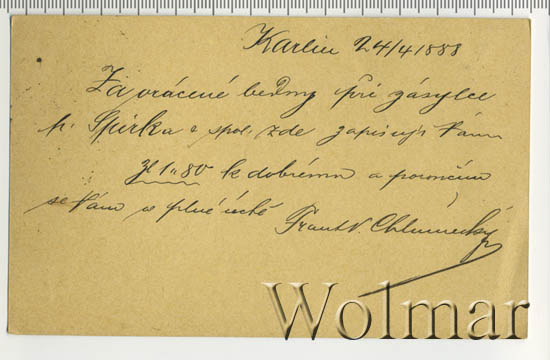 Karlin 24/4 1888
Za vrácené bedny při zásylce
p. Špirka a spol. zde zapisuji Vám
Zl 1"80 k dobrému a poroučím
se Vám v plné úctě
Frant. V. Chlumecký
Wolmar